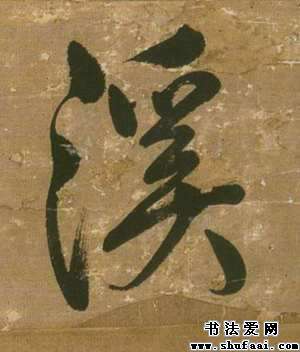 溪
书法爱网
www.shufaai.com